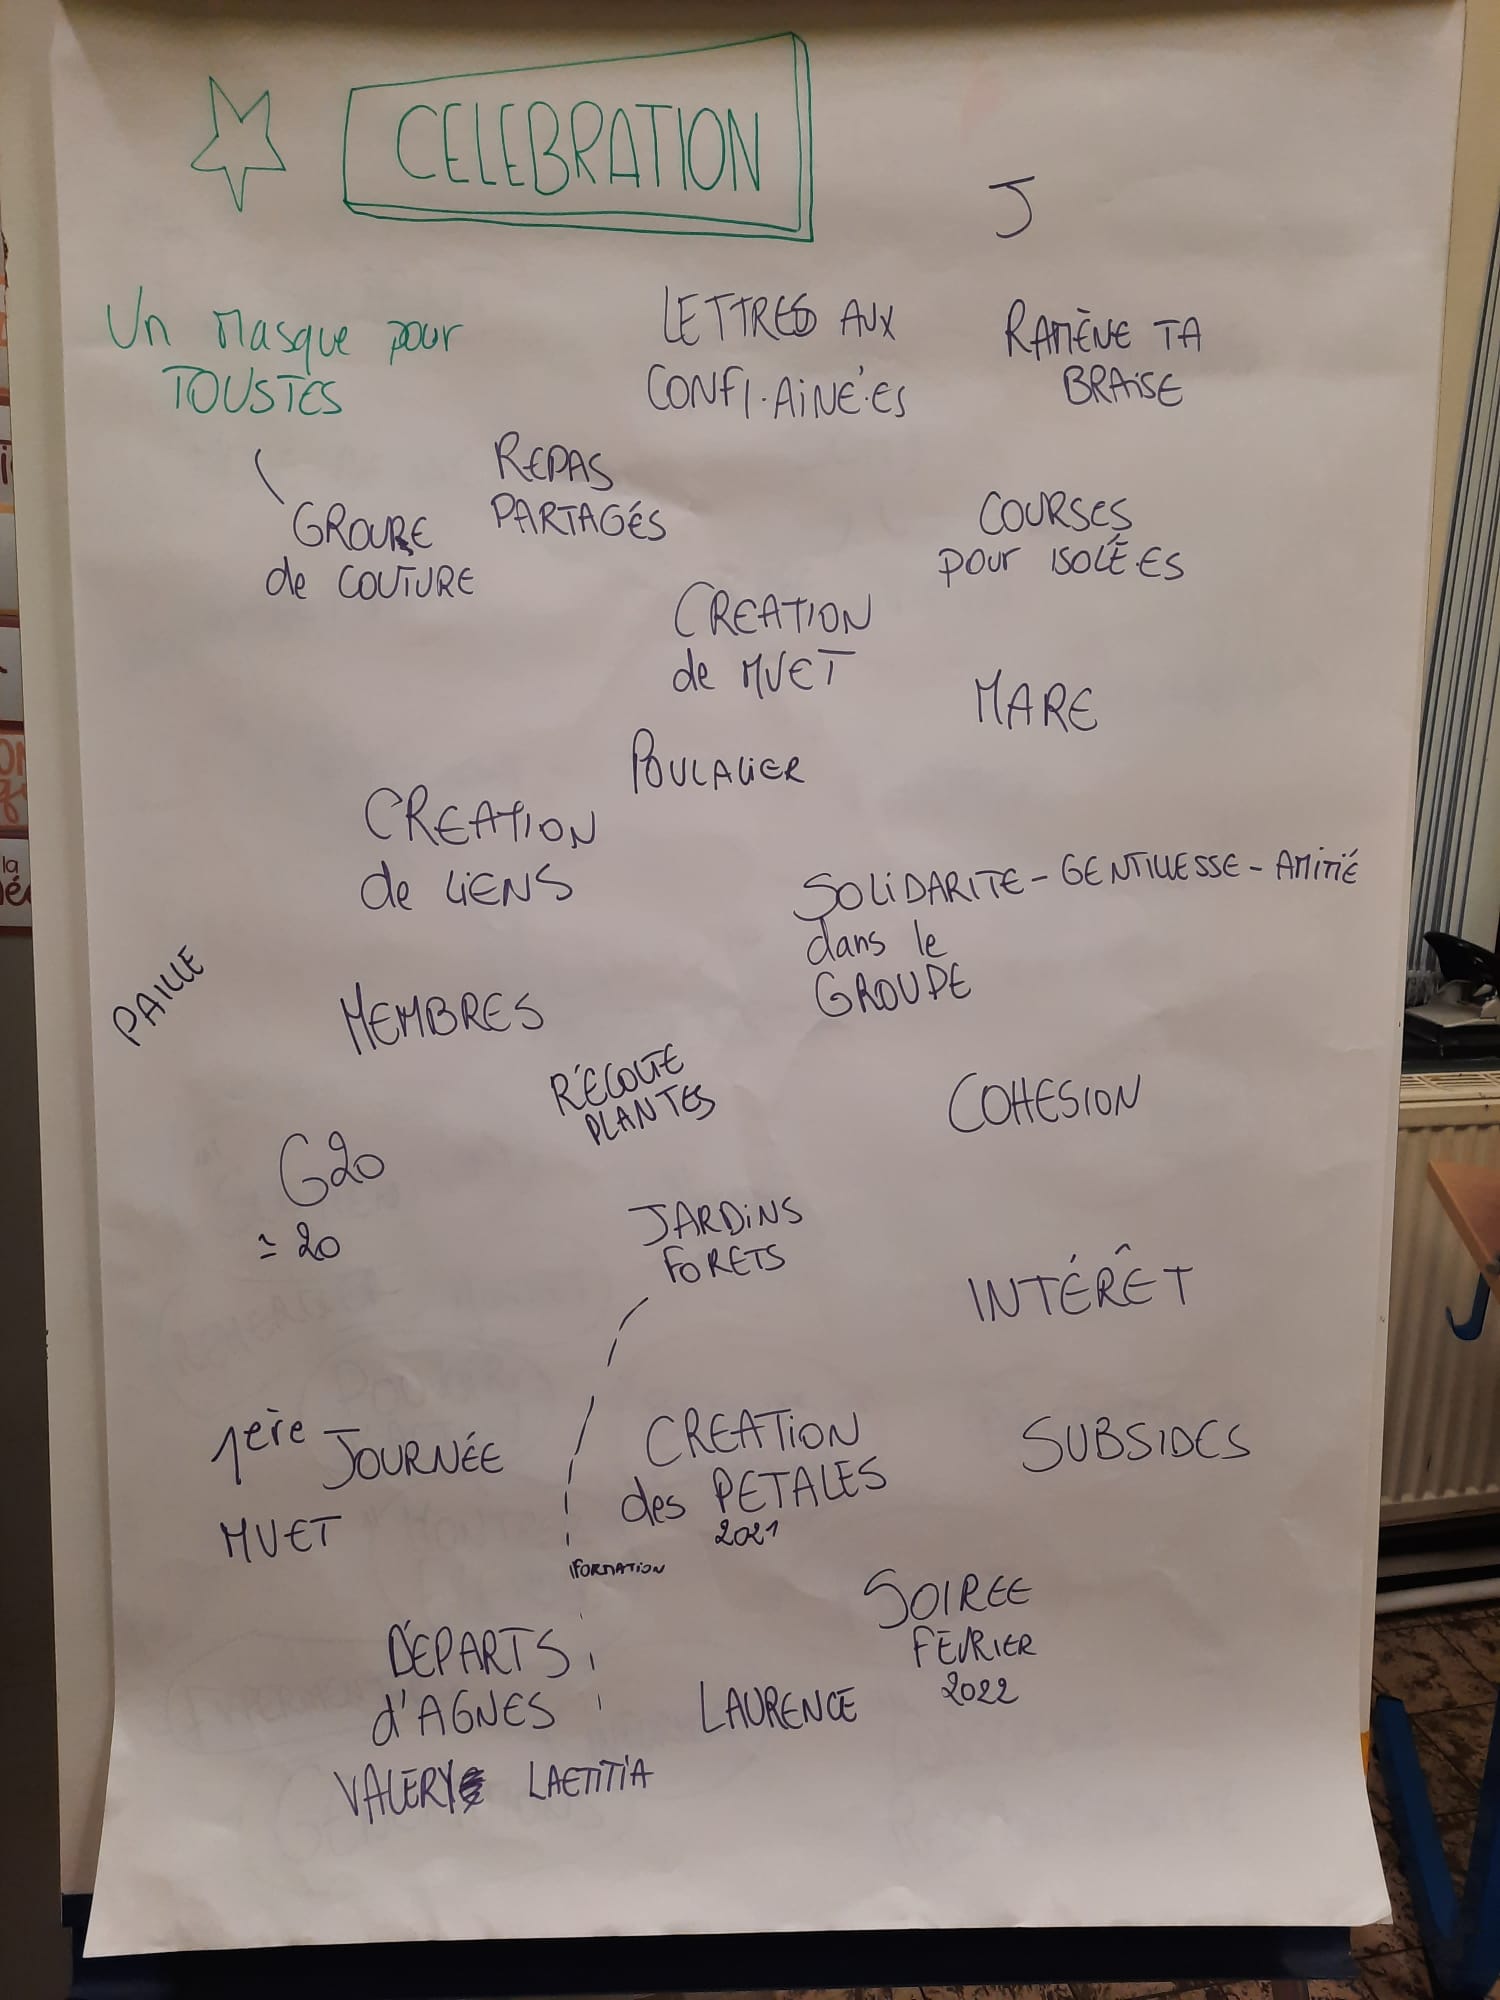 CELEBRATION
J
Un Masque pour
TOUSTES
LETTRES AUX
CONFI.AINÉ·ES
RAMÈNE TA
BRAISE
REPAS
PARTAGÉS
GROUPE
de COUTURE
COURSES
pour ISOLÉ·ES
CREATION
de MUET
MARE
POULAILLER
CREATION
de LIENS
SOLIDARITE - GENTILLESSE - AMITIÉ
dans le
GROUPE
PAILLE
MEMBRES
RÉCOLTE
PLANTES
COHESION
G20
≃ 20
JARDINS
FORETS
INTÉRÊT
1ère JOURNÉE
MUET
CREATION
des PETALES
2021
SUBSIDES
FORMATION
SOIREE
FÉVRIER
2022
DÉPARTS
d'AGNES
LAURENCE
VALERY LAETITIA